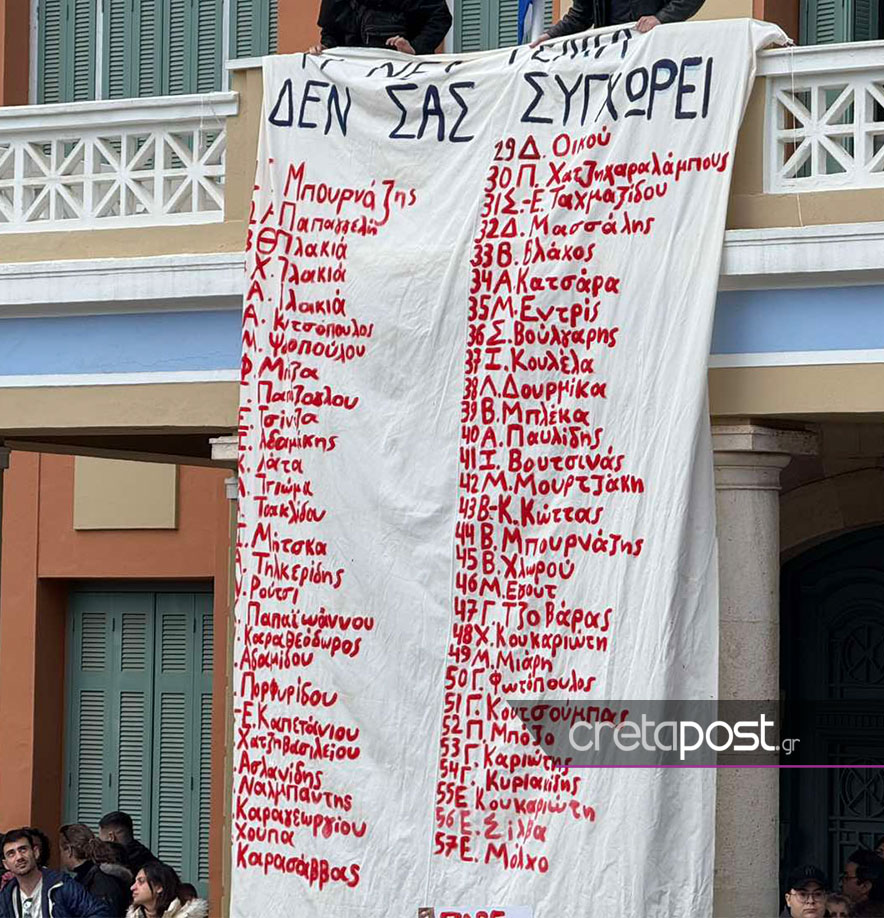 ΔΕΝ ΣΑΣ ΣΥΓΧΩΡΕΙ
Μπουρνάζης
Παπαγγελή
Θ Πλακιά
Χ. Πλακιά
Α. Πλακιά
Α. Κιτσόπουλος
Μ. Ψαροπούλου
Φ. Μπίζα
Παπάζογλου
Ε. Τσίντζα
Ε. Αδαμίκης
Κ. Λάτα
Τσακλίδου
Μήτσκα
Τηλκερίδης
Ρούτσι
Παπαϊωάννου
Καραθεόδωρος
Αδαμίδου
Πορφυρίδου
-Ε. Καπετάνιου
Χατζηβασιλείου
Ασλανίδης
Ναλμπάντης
Καραγεωργίου
Χούπα
Καρασάββας
29 Δ. Οικού
30 Π. Χατζηχαραλάμπους
31 Σ.-Ε. Ταχμαζίδου
32 Δ. Μασσάλης
33 Β. Βλάχος
34 Α. Κατσάρα
35 Μ. Εντρίς
36 Σ. Βούλγαρης
37 Ι. Κουλέλα
38 Λ. Δουρμίκα
39 Β. Μπλέκα
40 Α. Παυλίδης
41 Ι. Βουτσινάς
42 Μ. Μουρτζάκη
43 Β-Κ. Κώττας
44 Β. Μπουρνάζης
45 Β. Χλωρού
46 Μ. Εγούτ
47 Γ. Τζοβάρας
48 Χ. Κουκαριώτη
49 Μ. Μιάρη
50 Γ. Φωτόπουλος
51 Γ. Κουτσούμπας
52 Π. Μπόζο
53 Γ. Καριώτης
54 Γ. Κυριακίδης
55 Ε. Κουκαριώτη
56 Ε. Σίλβα
57 Ε. Μόλχο
cretapost.gr